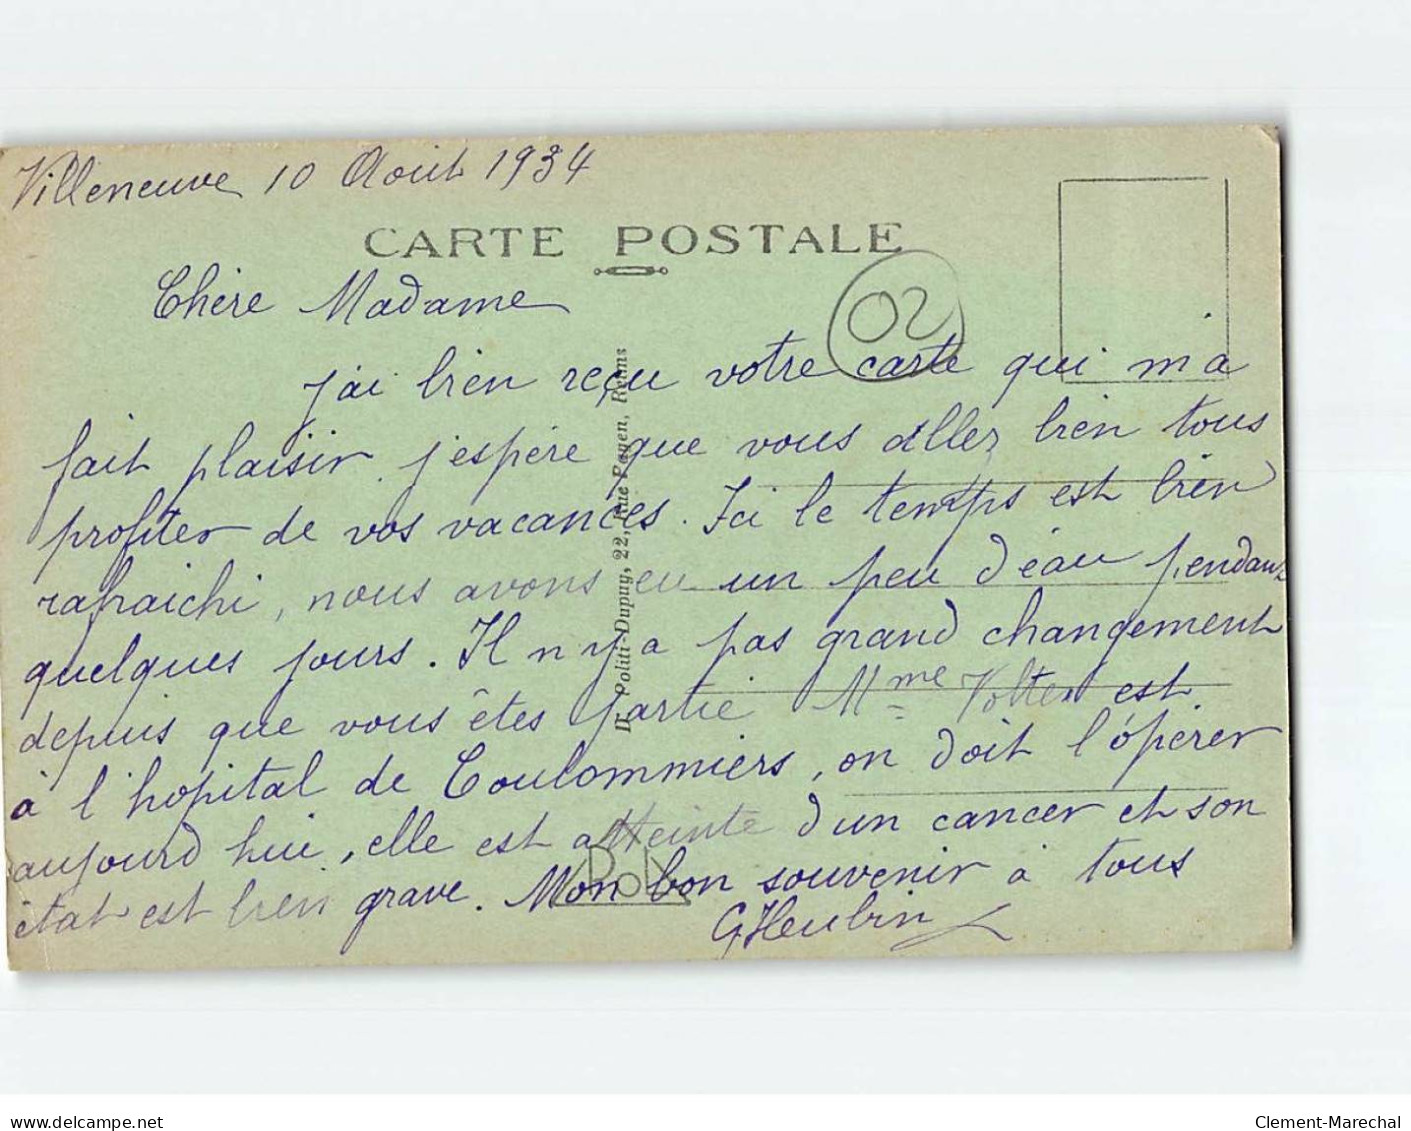 Villeneuve 10 Août 1934
CARTE POSTALE
02
Chère Madame
j'ai bien reçu votre carte qui m'a
fait plaisir j'espère que vous allez bien tous
profiter de vos vacances. Ici le temps est bien
rafraichi, nous avons eu un peu d'eau pendant
quelques jours. Il n'y a pas grand changement
depuis que vous êtes partie Mme Volter est
à l'hopital de Coulommiers, on doit l'opérer
aujourd'hui, elle est atteinte d'un cancer et son
état est bien grave. Mon bon souvenir à tous
G Heubin
D. Politi-Dupuy, 22, Rue Payen, Reims
RoL
Clement-Marechal
www.delcampe.net